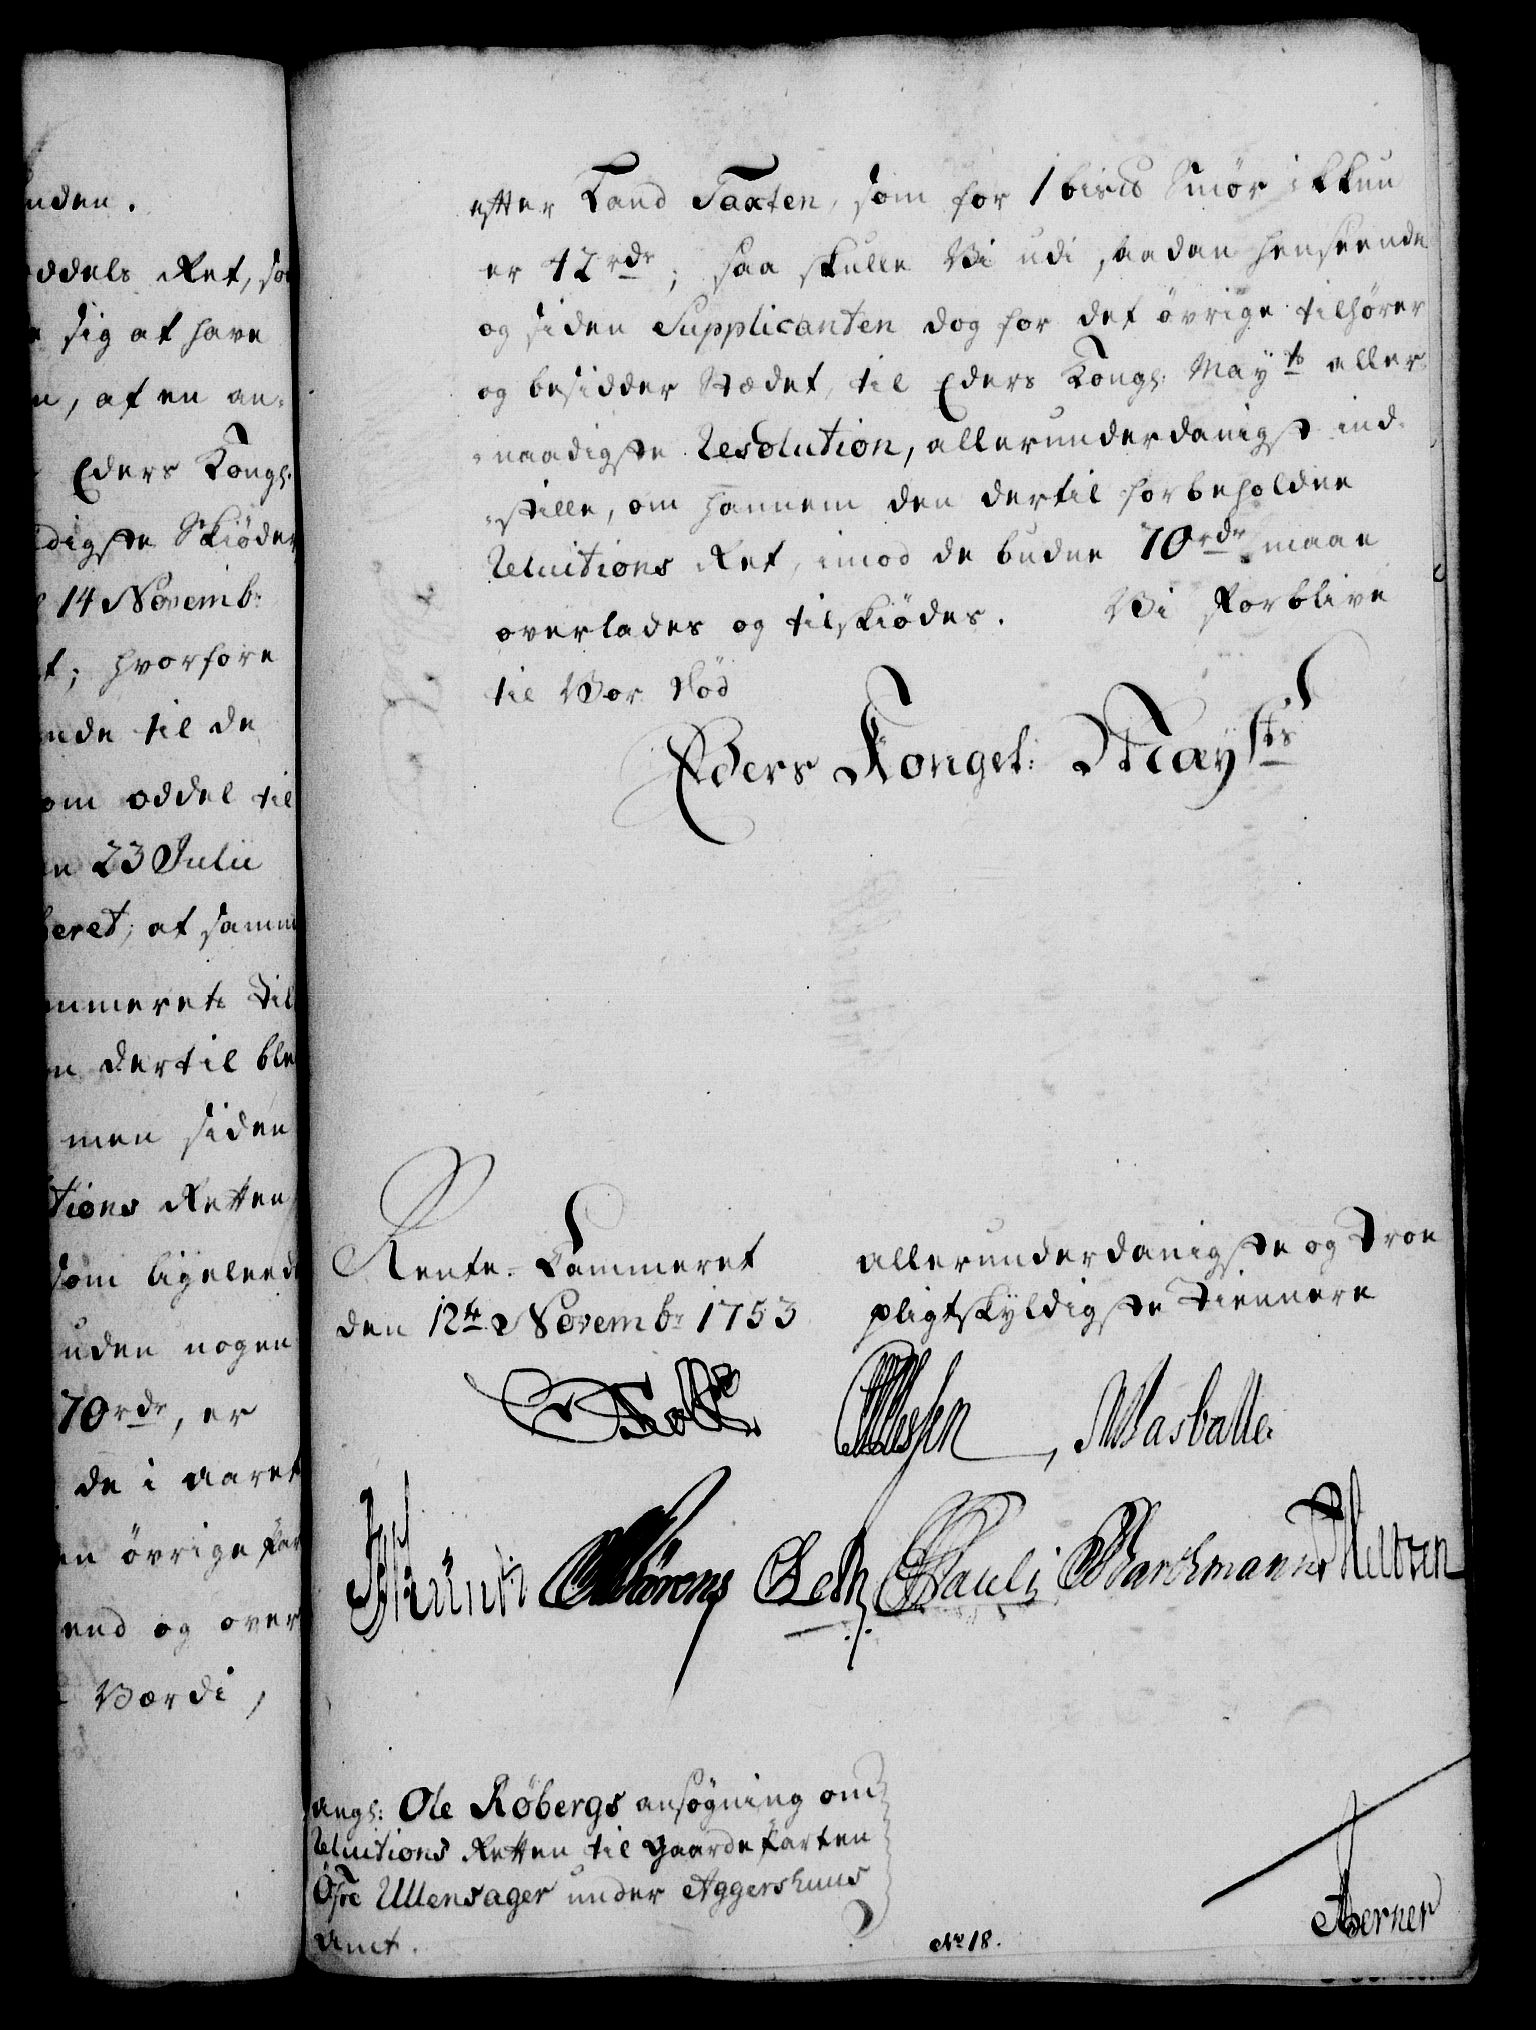 nden.
ddels Ret, so
sig at have
n, af en an-
Eders Kongl.
digste Skiøder
14 Novemb:
t; hvorfore
nde til de
om oddel til
en 23 Julii
eret; at samm
mmerets Til
n dertil ble
men siden
tions Retten
som ligeleed
uden nogen
70 rdr, er
de i aaret
en övrige Par
end og over
Værdi,
efter Land Taxten, som for 1 bispd Smör ikkun
er 42 rdr; saa skulle Vi udi saadan henseende
og siden Supplicanten dog for det övrige tilhører
og besidder Stædet, til Eders Kongl: Mayts aller-
-naadigste Resolution, allerunderdanigst ind-
-stille, om hannem den dertil forbeholdne
Reluitions Ret, imod de budne 70 rdr maae
overlades og tilskiödes. Vi Forblive
til Vor Död
Eders Kongel: Maysts
Rente-Cammeret
den 12te Novembr 1753
allerunderdanigste og Troe
pligtskyldigste Tiennere
Wasballe.
Leth
Pauli
Barchmann
Nielssen
angl: Ole Röbergs ansøgning om
Reluitions Retten til Gaardeparten
Östre Ullensager under Aggershuus
Amt.
No 18.
Berner